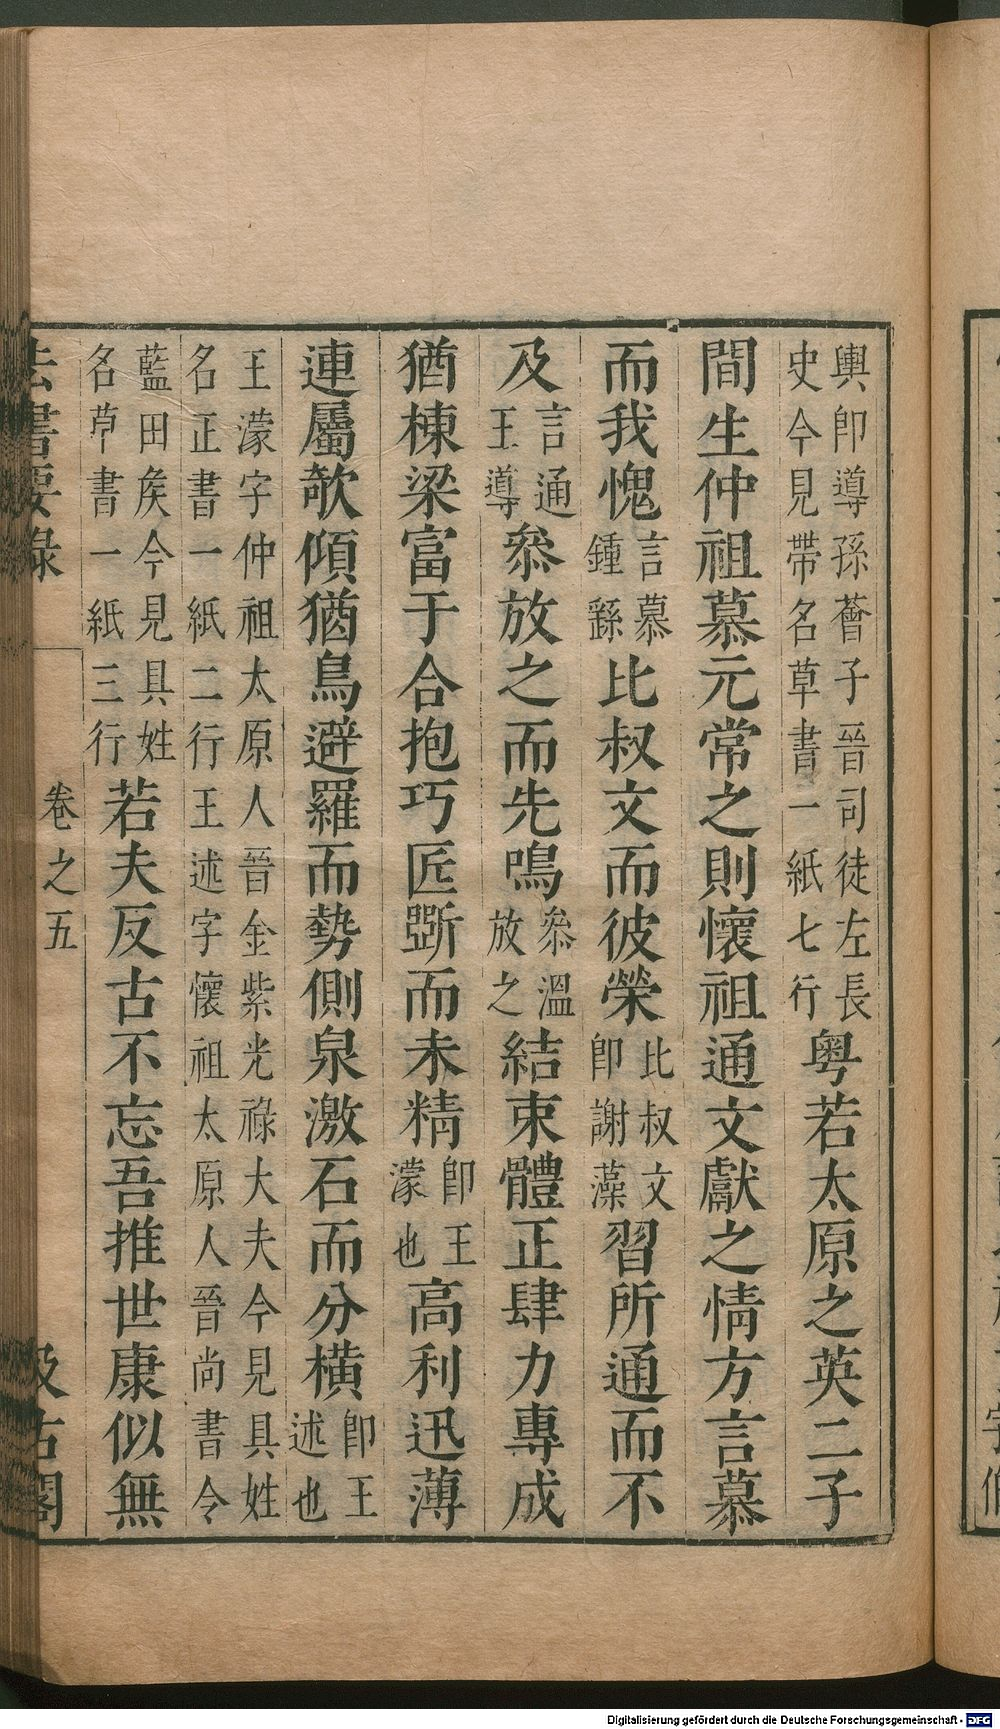 輿卽導孫薈子晉司徒左長
史今見帶名草書一紙七行
粤若太原之英二子
間生仲祖慕元常之則懷祖通文獻之情方言慕
而我愧
言慕
鍾繇
比叔文而彼榮
比叔文
卽謝藻
習所通而不
及
言通
王導
叅放之而先鳴
叅溫
放之
結束體正肆力專成
猶棟梁富于合抱巧匠斵而未精
卽王
濛也
高利迅薄
連屬欹傾猶鳥避羅而勢側泉激石而分横
卽王
述也
王濛字仲祖太原人晉金紫光祿大夫今見具姓
名正書一紙二行王述字懷祖太原人晉尚書令
藍田矦今見具姓
名草書一紙三行
若夫反古不忘吾推世康似無
法書要錄
卷之五
汲古閣